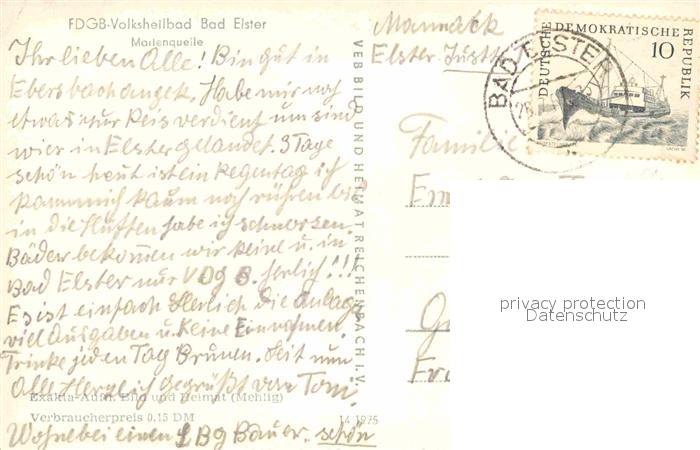 FDGB-Volksheilbad Bad Elster
Marienquelle
Ihr lieben Alle! Bin gut in
Ebersbach angek. Habe mir noch
etwas zur Reis verdient um sind
wier in Elster gelandet. 3 Tage
schön heut ist ein Regentag ich
kann mich kaum noch rühren bis
in die Hüften habe ich schmerzen.
Bäder bekommen wir keine u. in
Bad Elster nur herlich!!!
Es ist einfach Herlich die Anlag.
viel Ausgaben u. Keine Einnahmen.
Trinke jeden Tag Brunen. Seit nun
Alle Herzlich gegrüßt von Toni
Exakta-Aufn. Bild und Heimat (Mehlig)
Verbraucherpreis 0.15 DM
14 1975
Wohne bei einem Bauer. schön
VEB BILD UND HEIMAT REICHENBACH I. V.
Elster
BAD ELSTER
DEUTSCHE DEMOKRATISCHE REPUBLIK
10
Familie
privacy protection
Datenschutz